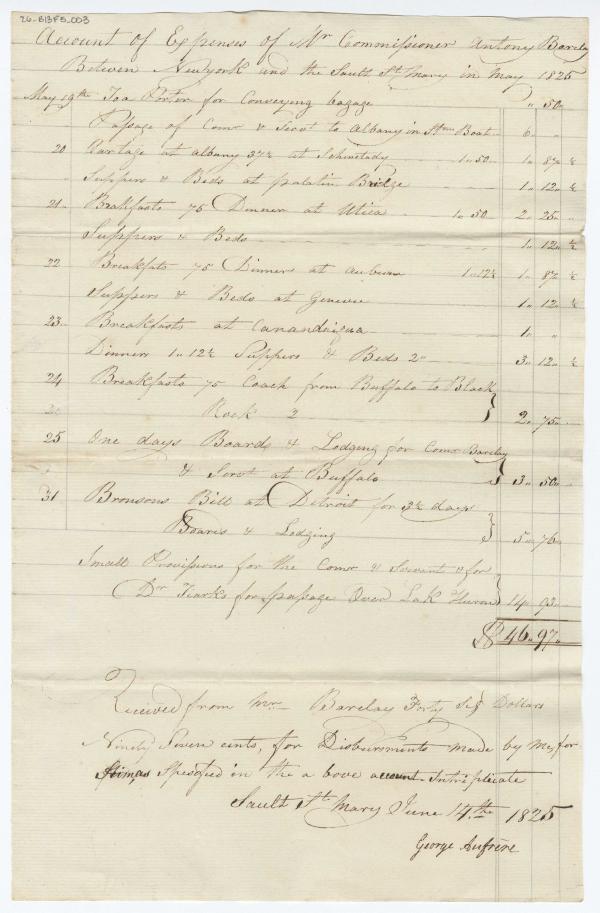 26-B13F5_003
Account of Expenses of Mr Commissioner Antony Barclay
Between Newyork and the Sault St Mary in May 1825
May 19th To a Porter for Conveying bagage " 50 "
Passage of Comr & Servt to Albany in Stm Boat 6 " "
20 Cartage at albany 37½ at Schinetady 1 " 50 1 " 87 ½
Suppers & Beds at palatin Bridge 1 " 12 " ½
21 Breakfasts 75 Dinner at Utica 1 " 50 2 " 25 "
Suppers & Beds 1 " 12 " ½
22 Breakfsts 75 Dinners at auburn 1 " 12½ 1 " 87 ½
Suppers & Beds at Genevee 1 " 12 " ½
23 Breakfasts at Canandaigua 1 " "
Dinners 1 " 12½ Suppers & Beds 2 " 3 " 12 " ½
24 Breakfasts 75 Coach from Buffalo to Black
Rock 2 2 " 75
25 One days Boards & Lodging for Comr Barclay
& Servt at Buffalo 3 " 50
31 Bronsons Bill at Detroit for 3½ days
Boards & Lodging 5 " 76
Small Provisions for the Comr & Servant & for
Dr Tiarks for passage Over Lak Huron 14 " 93
$ 46 " 97 "
Received from Mr Barclay Forty Six Dollars
Ninety Seven cents, for Disbursments made by me, for
Spesified in the a bove account In triplicate
Sault Ste Mary June 14th 1825
George Aufrère